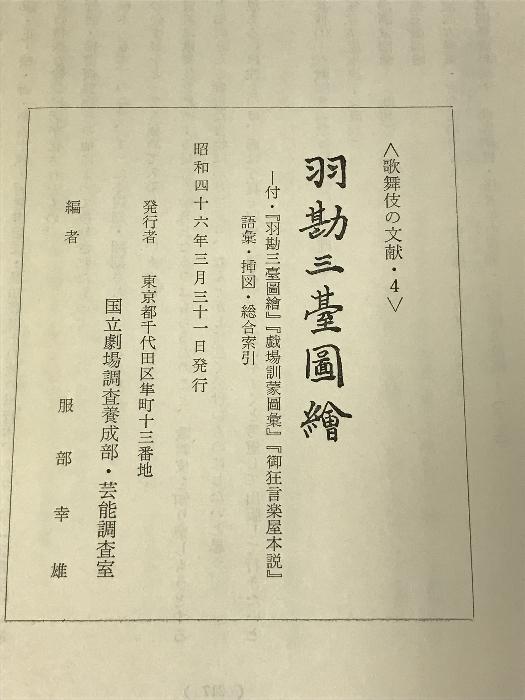 <歌舞伎の文献・4>
羽勘三臺圖繪
―付・『羽勘三臺圖繪』『戯場訓蒙圖彙』『御狂言楽屋本説』
語彙・挿図・総合索引
昭和四十六年三月三十一日発行
発行者 東京都千代田区隼町十三番地
国立劇場調査養成部・芸能調査室
編者 服部幸雄